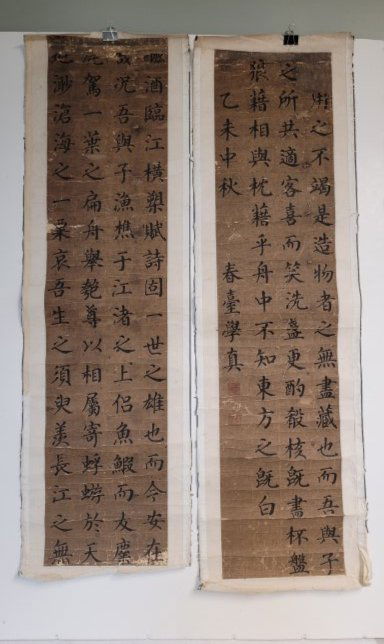 之不竭是造物者之無盡藏也而吾與子
之所共適客喜而笑洗盞更酌殽核旣盡杯盤
狼藉相與枕藉乎舟中不知東方之旣白
乙未中秋 春臺學真
酒臨江橫槊賦詩固一世之雄也而今安在
哉況吾與子漁樵于江渚之上侶魚鰕而友麋
鹿駕一葉之扁舟舉匏尊以相屬寄蜉蝣於天
地渺滄海之一粟哀吾生之須臾羨長江之無